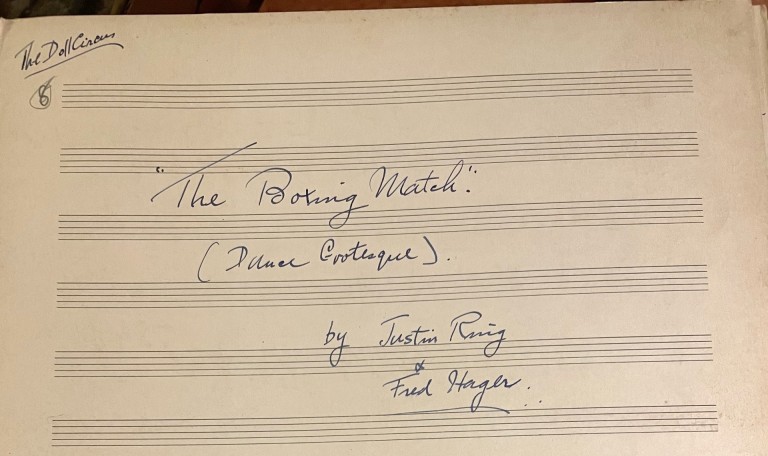 The Doll Circus
8
"The Boxing Match".
(Dance Grotesque).
by Justin Ring
&
Fred Hager.